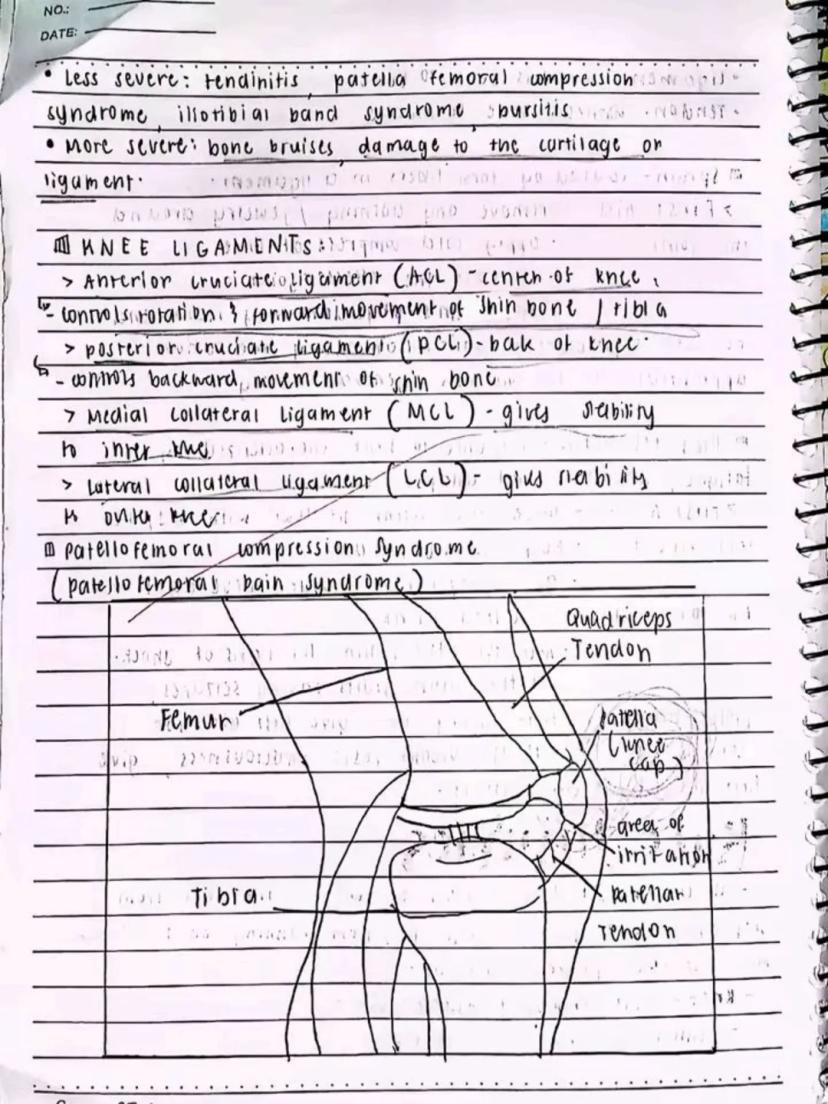 NO.:
DATE:
• Less severe: tendinitis, patella femoral compression
syndrome, illotibial band syndrome, bursitis
• More severe: bone bruises, damage to the cartilage or
ligament.
KNEE LIGAMENTS:
> Anterior cruciate ligament (ACL) - center of knee.
- controls rotation & forward movement of shin bone / tibia
> posterior cruciate ligament (PCL) - bak of knee.
- controls backward movement of shin bone
> Medial collateral ligament (MCL) - gives stability
to inner knee
> Lateral collateral ligament (LCL) - gives stability
to outer knee
patello femoral compression syndrome
(patello femoral pain syndrome)
Quadriceps
Tendon
Femur
patella
(knee
cap)
area of
irritation
Tibia
patellar
Tendon